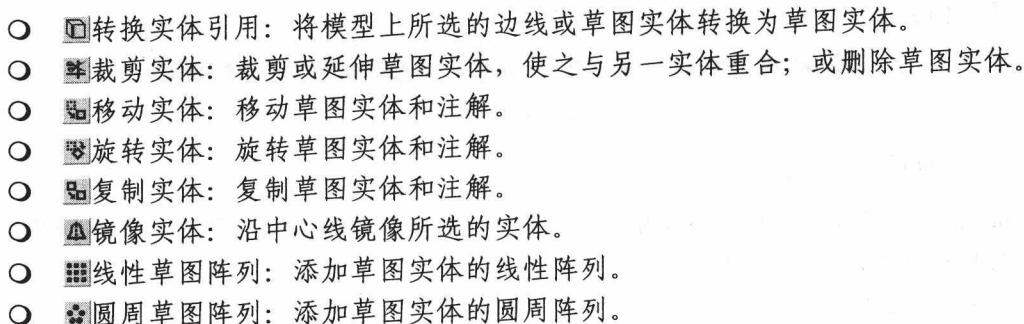 转换实体引用：将模型上所选的边线或草图实体转换为草图实体。
裁剪实体：裁剪或延伸草图实体，使之与另一实体重合；或删除草图实体。
移动实体：移动草图实体和注解。
旋转实体：旋转草图实体和注解。
复制实体：复制草图实体和注解。
镜像实体：沿中心线镜像所选的实体。
线性草图阵列：添加草图实体的线性阵列。
圆周草图阵列：添加草图实体的圆周阵列。